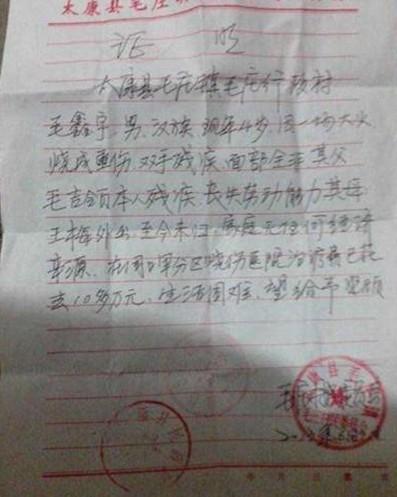 太康县毛庄
证 明
太康县毛庄镇毛庄行政村
毛鑫宇，男，汉族，现年4岁，因一场大火
烧成重伤，双手残疾，面部全平，其父
毛吉领本人残疾，丧失劳动能力，其母
王梅外出，至今未归，家庭无任何经济
来源，在周口军分区烧伤医院治疗，
去10多万元，生活困难，望给予